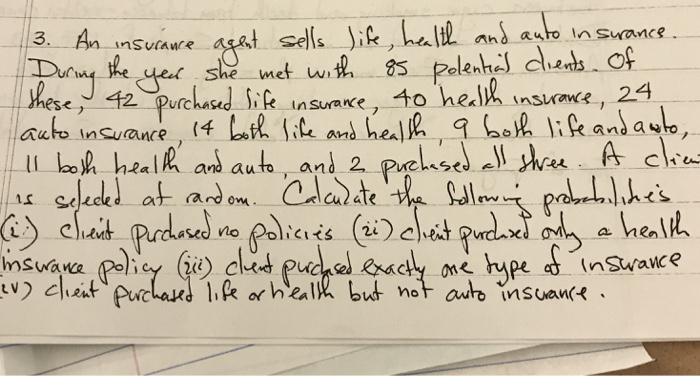 3. An insurance agent sells life, health and auto insurance.
During the year she met with 85 potential clients. Of
these, 42 purchased life insurance, 40 health insurance, 24
auto insurance, 14 both life and health, 9 both life and auto,
11 both health and auto, and 2 purchased all three. A clien
is selected at random. Calculate the following probabilities
(i) client purchased no policies (ii) client purchased only a health
insurance policy (iii) client purchased exactly one type of insurance
(iv) client purchased life or health but not auto insurance.